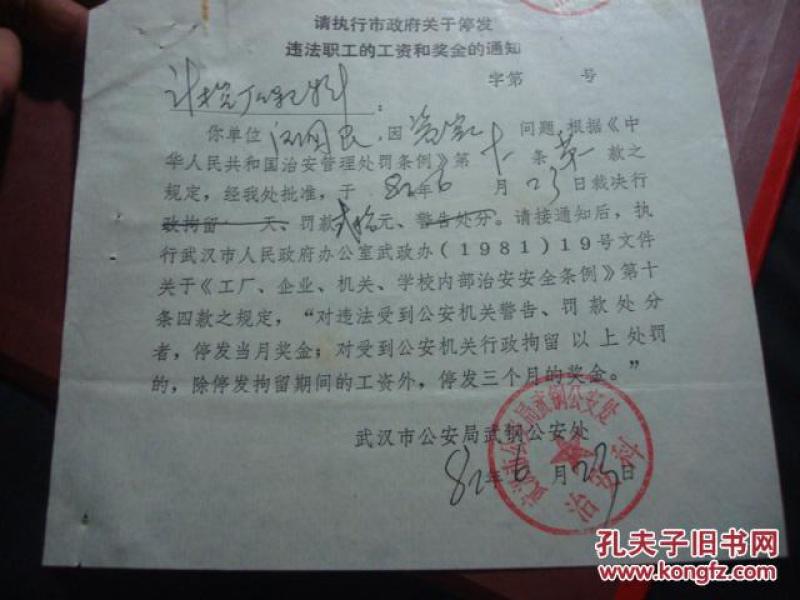 请执行市政府关于停发
违法职工的工资和奖金的通知
字第 号
:
你单位 ,因 问题,根据《中
华人民共和国治安管理处罚条例》第十一条第一款之
规定,经我处批准,于82年6月23日裁决行
政拘留 天、罚款贰拾元、警告处分。请接通知后,执
行武汉市人民政府办公室武政办(1981)19号文件
关于《工厂、企业、机关、学校内部治安安全条例》第十
条四款之规定,“对违法受到公安机关警告、罚款处分
者,停发当月奖金;对受到公安机关行政拘留以上处罚
的,除停发拘留期间的工资外,停发三个月的奖金。”
武汉市公安局武钢公安处
82年6月23日
武汉市公安局武钢公安处
治安科
孔夫子旧书网
www.kongfz.com